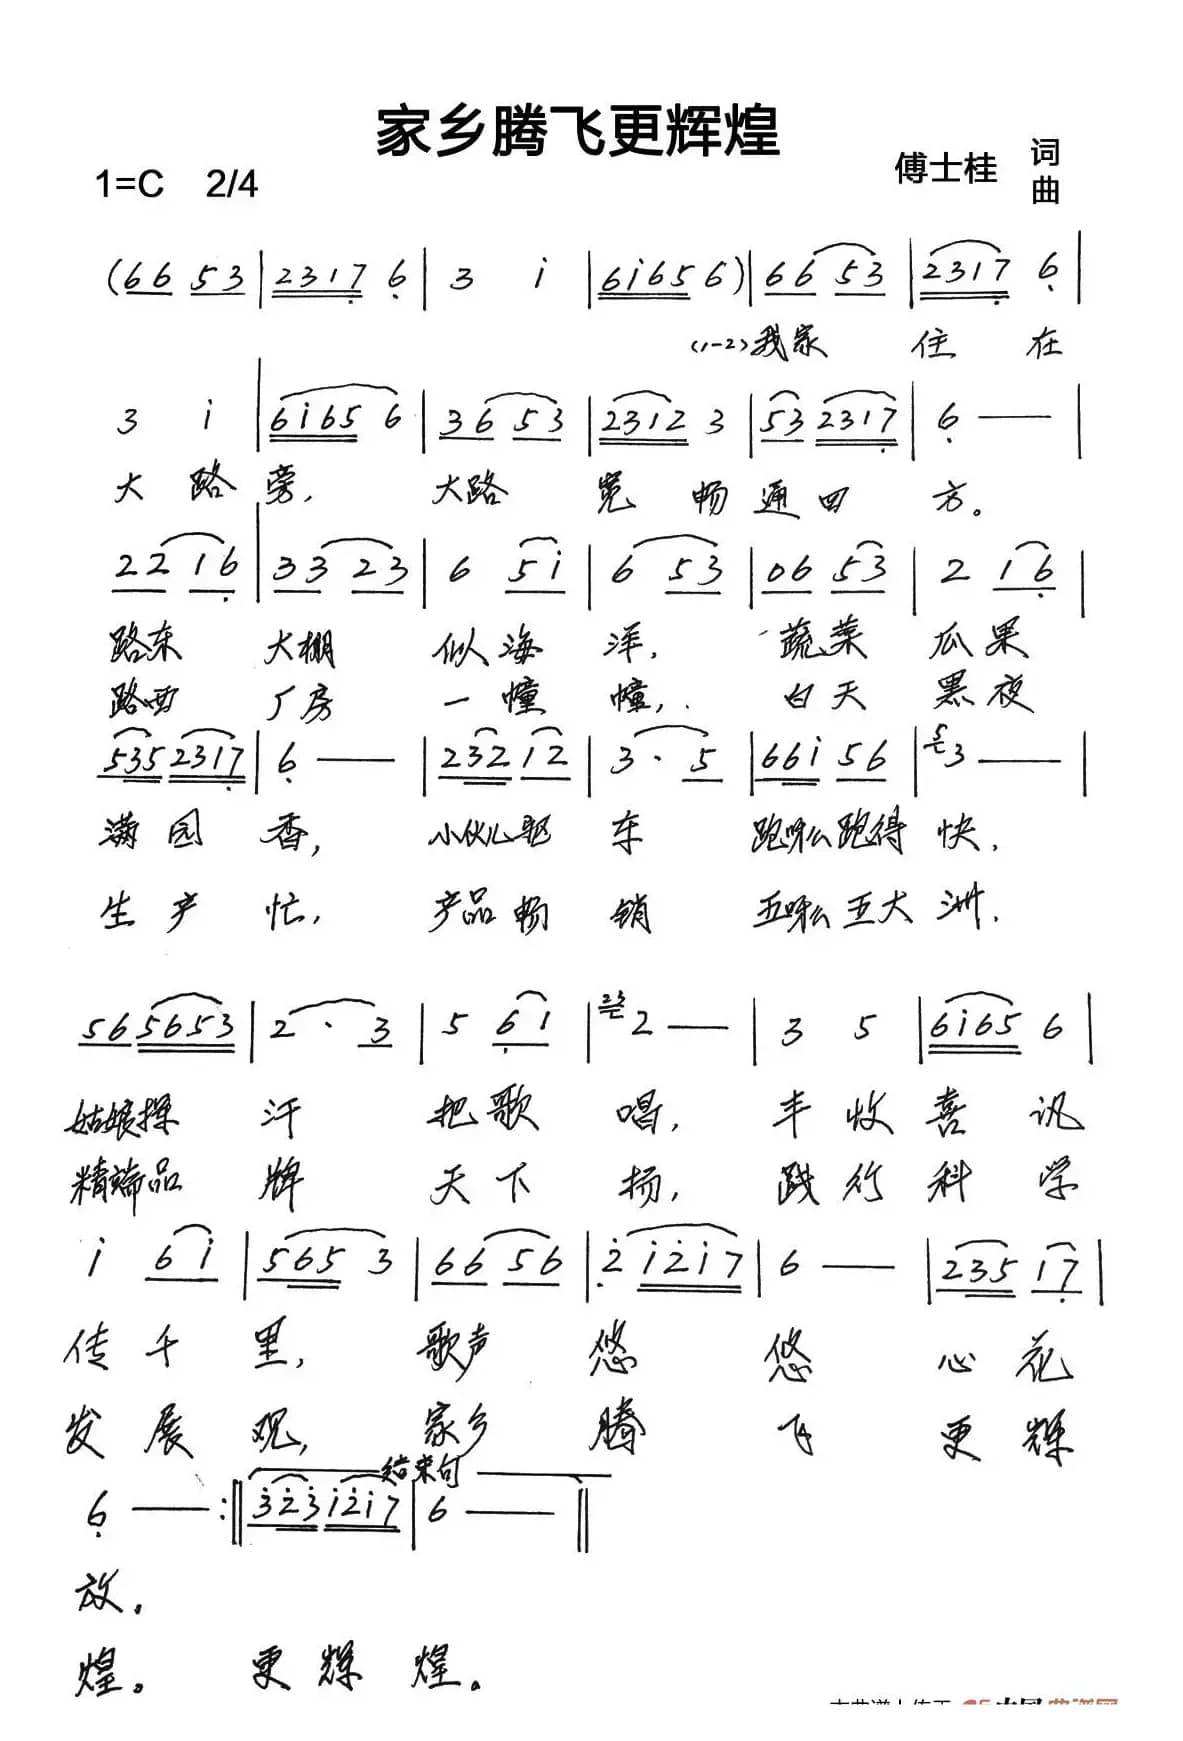 家乡腾飞更辉煌
1=C 2/4
傅士桂 词
曲
(66 53 | 2317 6 | 3 i | 6i65 6) | 66 53 | 2317 6 |
(1-2)我家 住 在
3 i | 6i65 6 | 36 53 | 2312 3 | 53 2317 | 6 — |
大 路 旁, 大路 宽 畅 通 四 方。
22 16 | 33 23 | 6 5i | 6 53 | 06 53 | 2 16 |
路东 大棚 似 海 洋, 蔬菜 瓜果
路西 厂房 一 幢 幢, 白天 黑夜
535 2317 | 6 — | 232 12 | 3 · 5 | 66i 56 | 5 3 — |
满 园 香, 小伙儿驱 车 跑呀么跑得 快,
生 产 忙, 产品畅 销 五呀么五大 洲,
56 5653 | 2 · 3 | 5 61 | 23 2 — | 3 5 | 6i65 6 |
姑娘擦 汗 把歌 唱, 丰 收 喜 讯
精端品 牌 天下 扬, 践行 科 学
i 6i | 565 3 | 66 56 | 2 i2i7 | 6 — | 235 17 |
传 千 里, 歌声 悠 悠 心 花
发 展 观, 家乡 腾 飞 更 辉
6 — :‖ 323 i2i7 | 6 — ‖
结束句
放。
煌。 更 辉 煌。